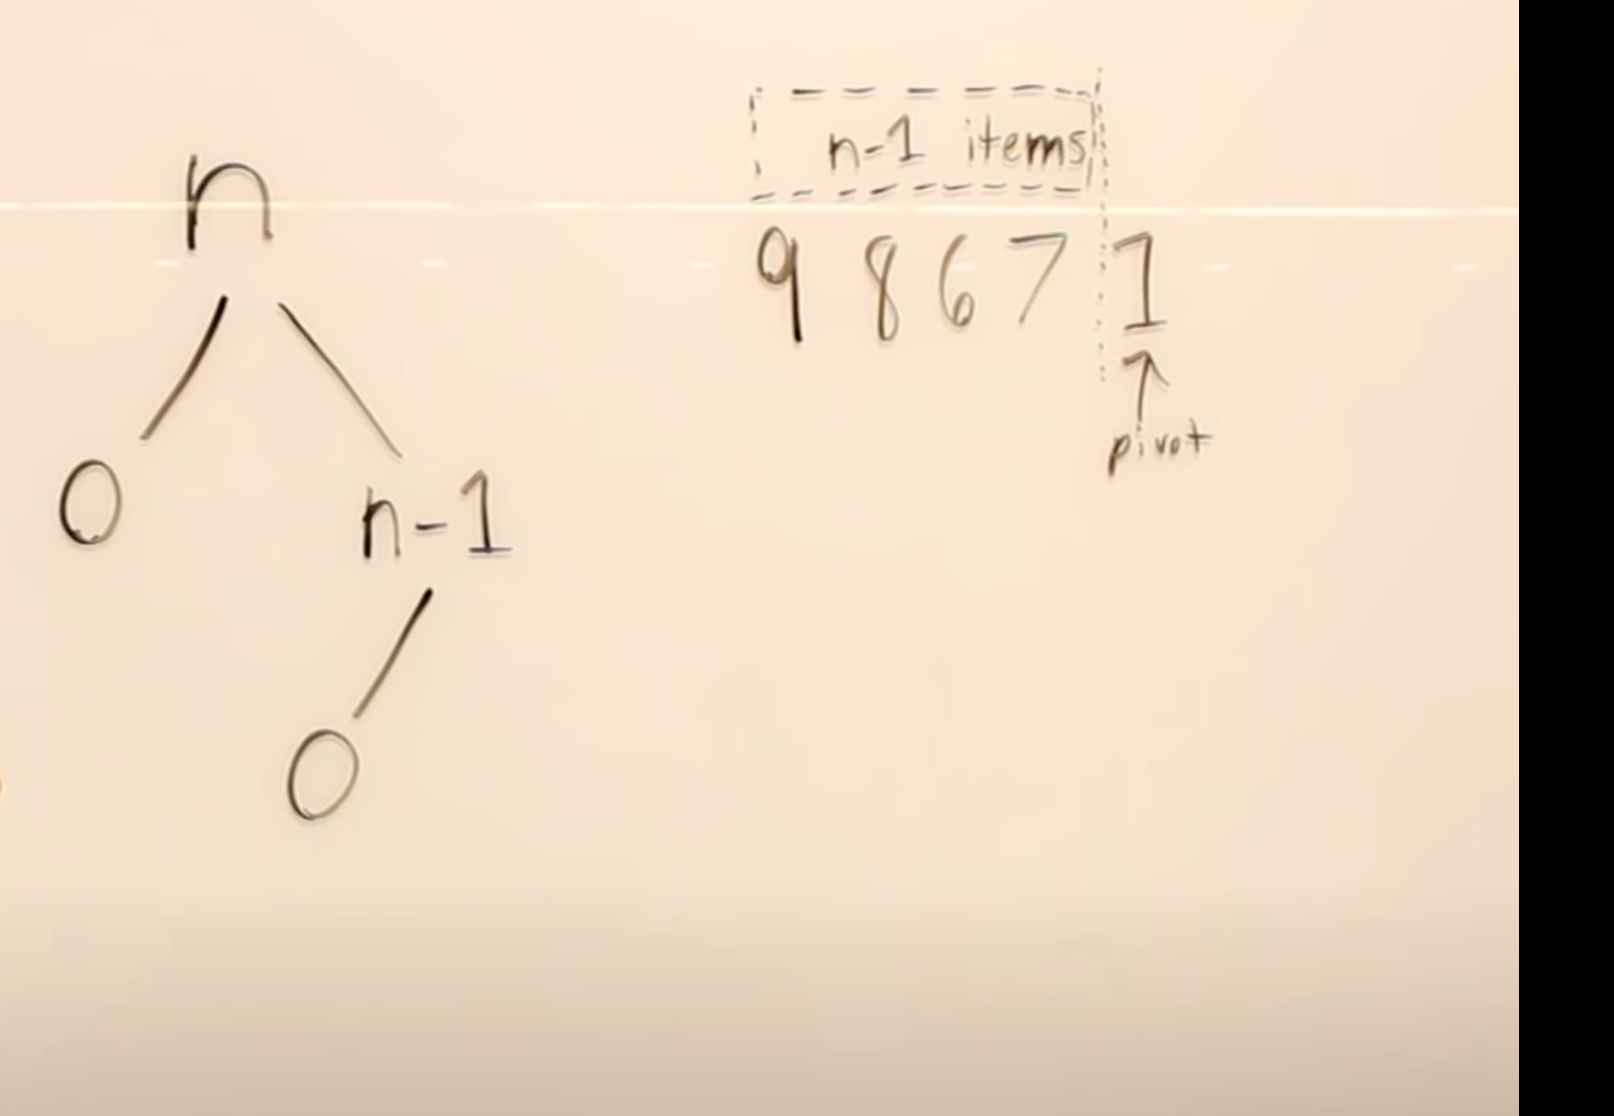 n
0 n-1
0
n-1 items
9 8 6 7 1
pivot